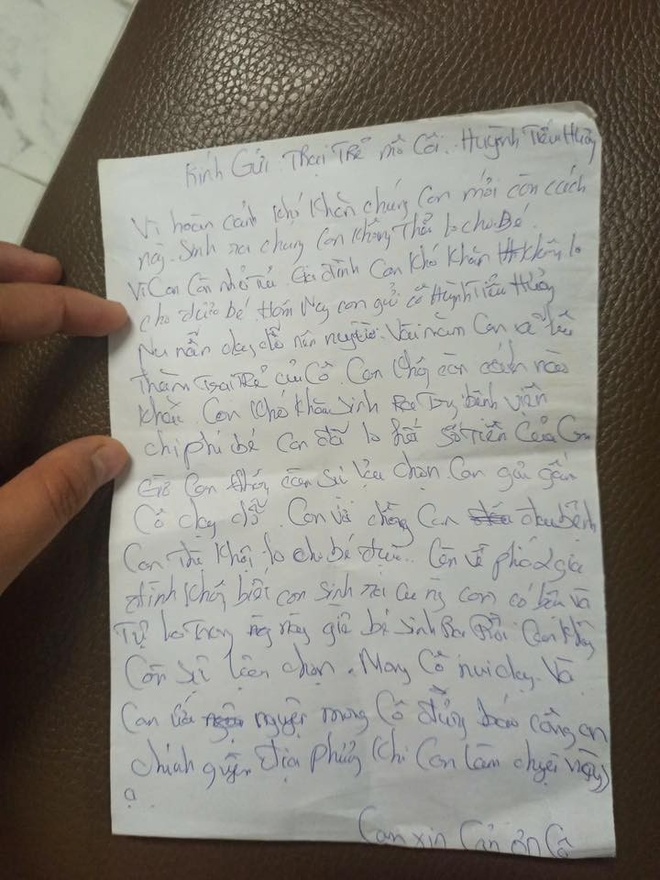 Kính Gửi Trại Trẻ mồ Côi. Huỳnh Tiểu Hường
Vì hoàn cảnh khó khăn chúng con mới còn cách
này. Sinh ra chúng con không thể lo cho bé.
Vì con còn nhỏ Gia đình con khó khăn không lo
cho đứa bé Hôm nay con gửi cô Huỳnh Tiểu Hường
dạy dỗ nên người. Vài năm con về
Thăm Trại Trẻ của Cô. Con không còn cách nào
khác. Con khó khăn sinh bệnh viện
chi phí bé con đã lo hết số tiền của con
Giờ con không còn sự lựa chọn con gửi gắm
Cô dạy dỗ. Con và chồng con đau bệnh
con lo cho bé được. Còn về gia
đình không biết con sinh ra
Tự lo trong giờ bé sinh ra rồi con không
còn sự chọn. Mong Cô nuôi dạy. Và
Con nguyện mong Cô đừng báo công an
chính quyền địa phương khi con làm chuyện này
ạ
Con xin cảm ơn Cô